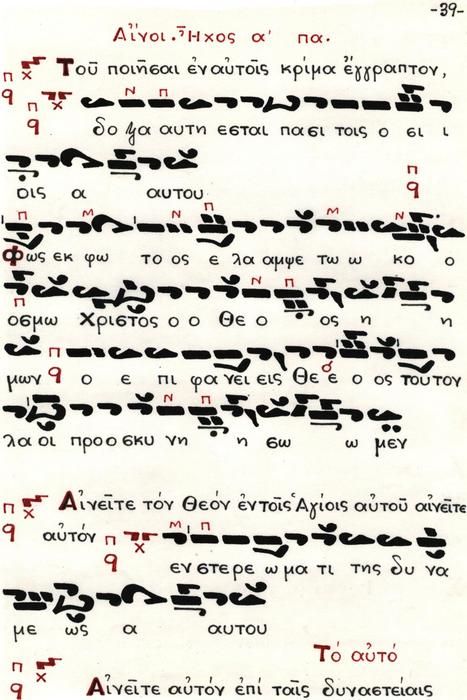 -39-
Αἶνοι. Ἦχος α' πα.
Τοῦ ποιῆσαι ἐν αὐτοῖς κρίμα ἔγγραπτον,
Ν Π
δο ξα αυτη εσται πασι τοις ο σι ι
οις α αυτου
Π Μ Ν Π Μ Ν
Φως εκ φω το ος ε λα αμψε τω ω κο ο
Π Ν Π
οσμω Χριστος ο ο Θε ο ος η η
μων ο ε πι φα νει εις Θε ε ο ος τουτον
Ν Π
λα οι προ ο σκυ νη η σω ω μεν
Αἰνεῖτε τόν Θεόν ἐν τοῖς Ἁγίοις αὐτοῦ αἰνεῖτε
αὐτόν Μ Π
εν στερε ω μα τι της δυ να
με ως α αυτου
Τό αὐτό
Αἰνεῖτε αὐτόν ἐπί ταῖς δυναστείαις